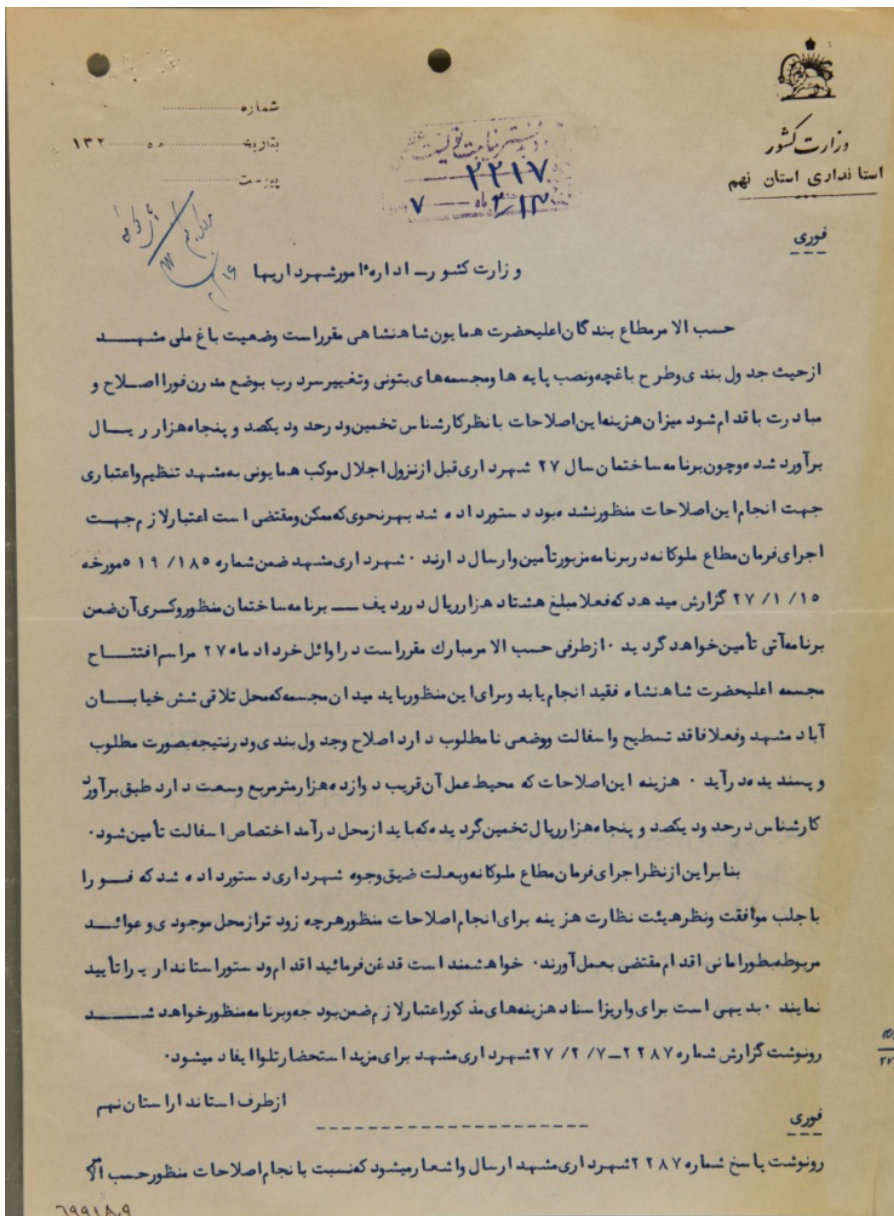 شماره
بتاریخ ماه ۱۳۲
پیوست
وزارت کشور
استانداری استان نهم
۲۲۱۷
۷ ماه ۲/۱۳
فوری
وزارت کشور ــ اداره امور شهرداریها
حسب الامر مطاع بندگان اعلیحضرت همایون شاهنشاهی مقرر است وضعیت باغ ملی مشهد
از حیث جدول بندی و طرح باغچه و نصب پایه ها و مجسمه های بتونی و تغییر سردرب بوضع مدرن فورا اصلاح و
مبادرت باقدام شود میزان هزینه این اصلاحات بانظر کارشناس تخمین و در حدود یکصد و پنجاه هزار ریال
برآورد شده و چون برنامه ساختمان سال ۲۷ شهرداری قبل از نزول اجلال موکب همایونی به مشهد تنظیم و اعتباری
جهت انجام این اصلاحات منظور نشده بود دستور داده شد بهر نحوی که ممکن و مقتضی است اعتبار لازم جهت
اجرای فرمان مطاع ملوکانه در برنامه مزبور تأمین و ارسال دارند ۰ شهرداری مشهد ضمن شماره ۱۸۵ /۵۱۹ مورخه
۱۵ /۱ /۲۷ گزارش میدهد که فعلا مبلغ هشتاد هزار ریال در ردیف ــ برنامه ساختمان منظور و کسری آن ضمن
برنامه آتی تأمین خواهد گردید ۰ از طرفی حسب الامر مبارك مقرر است در اوائل خرداد ماه ۲۷ مراسم افتتاح
مجسمه اعلیحضرت شاهنشاه فقید انجام یابد و برای این منظور باید میدان مجسمه که محل تلاقی شش خیابان
آباد مشهد و فعلا فاقد تسطیح و اسفالت و وضعی نامطلوب دارد اصلاح و جدول بندی و در نتیجه بصورت مطلوب
و پسندیده درآید ۰ هزینه این اصلاحات که محیط عمل آن قریب دوازده هزار متر مربع وسعت دارد طبق برآورد
کارشناس در حدود یکصد و پنجاه هزار ریال تخمین گردیده که باید از محل درآمد اختصاص اسفالت تأمین شود ۰
بنابراین از نظر اجرای فرمان مطاع ملوکانه و بعلت ضیق وجوه شهرداری دستور داده شد که فورا
با جلب موافقت و نظر هیئت نظارت هزینه برای انجام اصلاحات منظور هرچه زودتر از محل موجودی و عوائد
مربوطه بطور امانی اقدام مقتضی بعمل آورند ۰ خواهشمند است قدغن فرمائید اقدام و دستور استانداری را تأیید
نمایند ۰ بدیهی است برای واریز اسناد هزینه های مذکور اعتبار لازم ضمن بودجه و برنامه منظور خواهد شد
رونوشت گزارش شماره ۲۲۸۷ــ۷/ ۲/ ۲۷ شهرداری مشهد برای مزید استحضار تلوا ایفاد میشود ۰
از طرف استاندار استان نهم
فوری
رونوشت پاسخ شماره ۲۲۸۷ شهرداری مشهد ارسال و اشعار میشود که نسبت بانجام اصلاحات منظور حسب الامر
۶۹۹۱۸۰۹